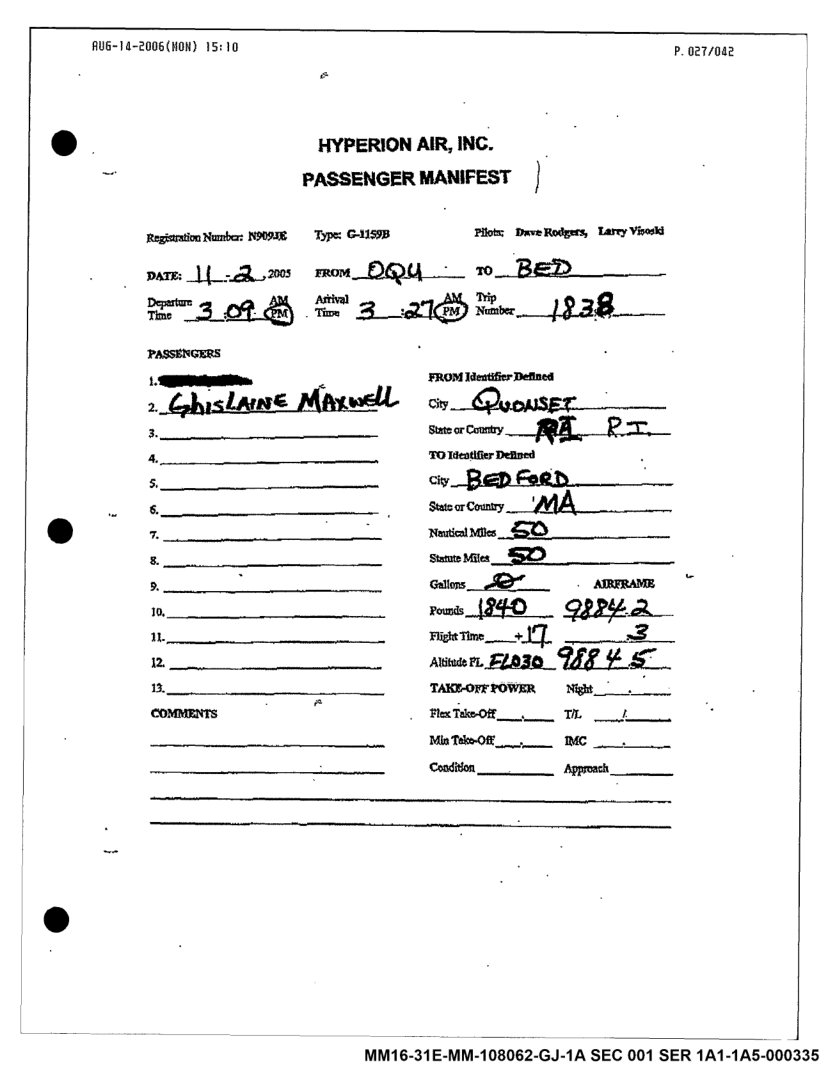 AUG-14-2006(MON) 15:10 P. 027/042
HYPERION AIR, INC.
PASSENGER MANIFEST
Registration Number: N909JE Type: G-1159B Pilots: Dave Rodgers, Larry Visoski
DATE: 11 - 2, 2005 FROM OQU TO BED
Departure Time 3:09 AM PM Arrival Time 3:27 AM PM Trip Number 1838
PASSENGERS
1.
FROM Identifier Defined
2. GhisLAINE MAXWELL
City QUONSET
3.
State or Country R.I.
4.
TO Identifier Defined
5.
City BEDFORD
6.
State or Country MA
7.
Nautical Miles 50
8.
Statute Miles 50
9.
Gallons 0 AIRFRAME
10.
Pounds 1840 9884.2
11.
Flight Time +17 .3
12.
Altitude FL FL030 9884.5
13.
TAKE-OFF POWER Night
COMMENTS
Flex Take-Off T/L /
Min Take-Off IMC
Condition Approach
MM16-31E-MM-108062-GJ-1A SEC 001 SER 1A1-1A5-000335